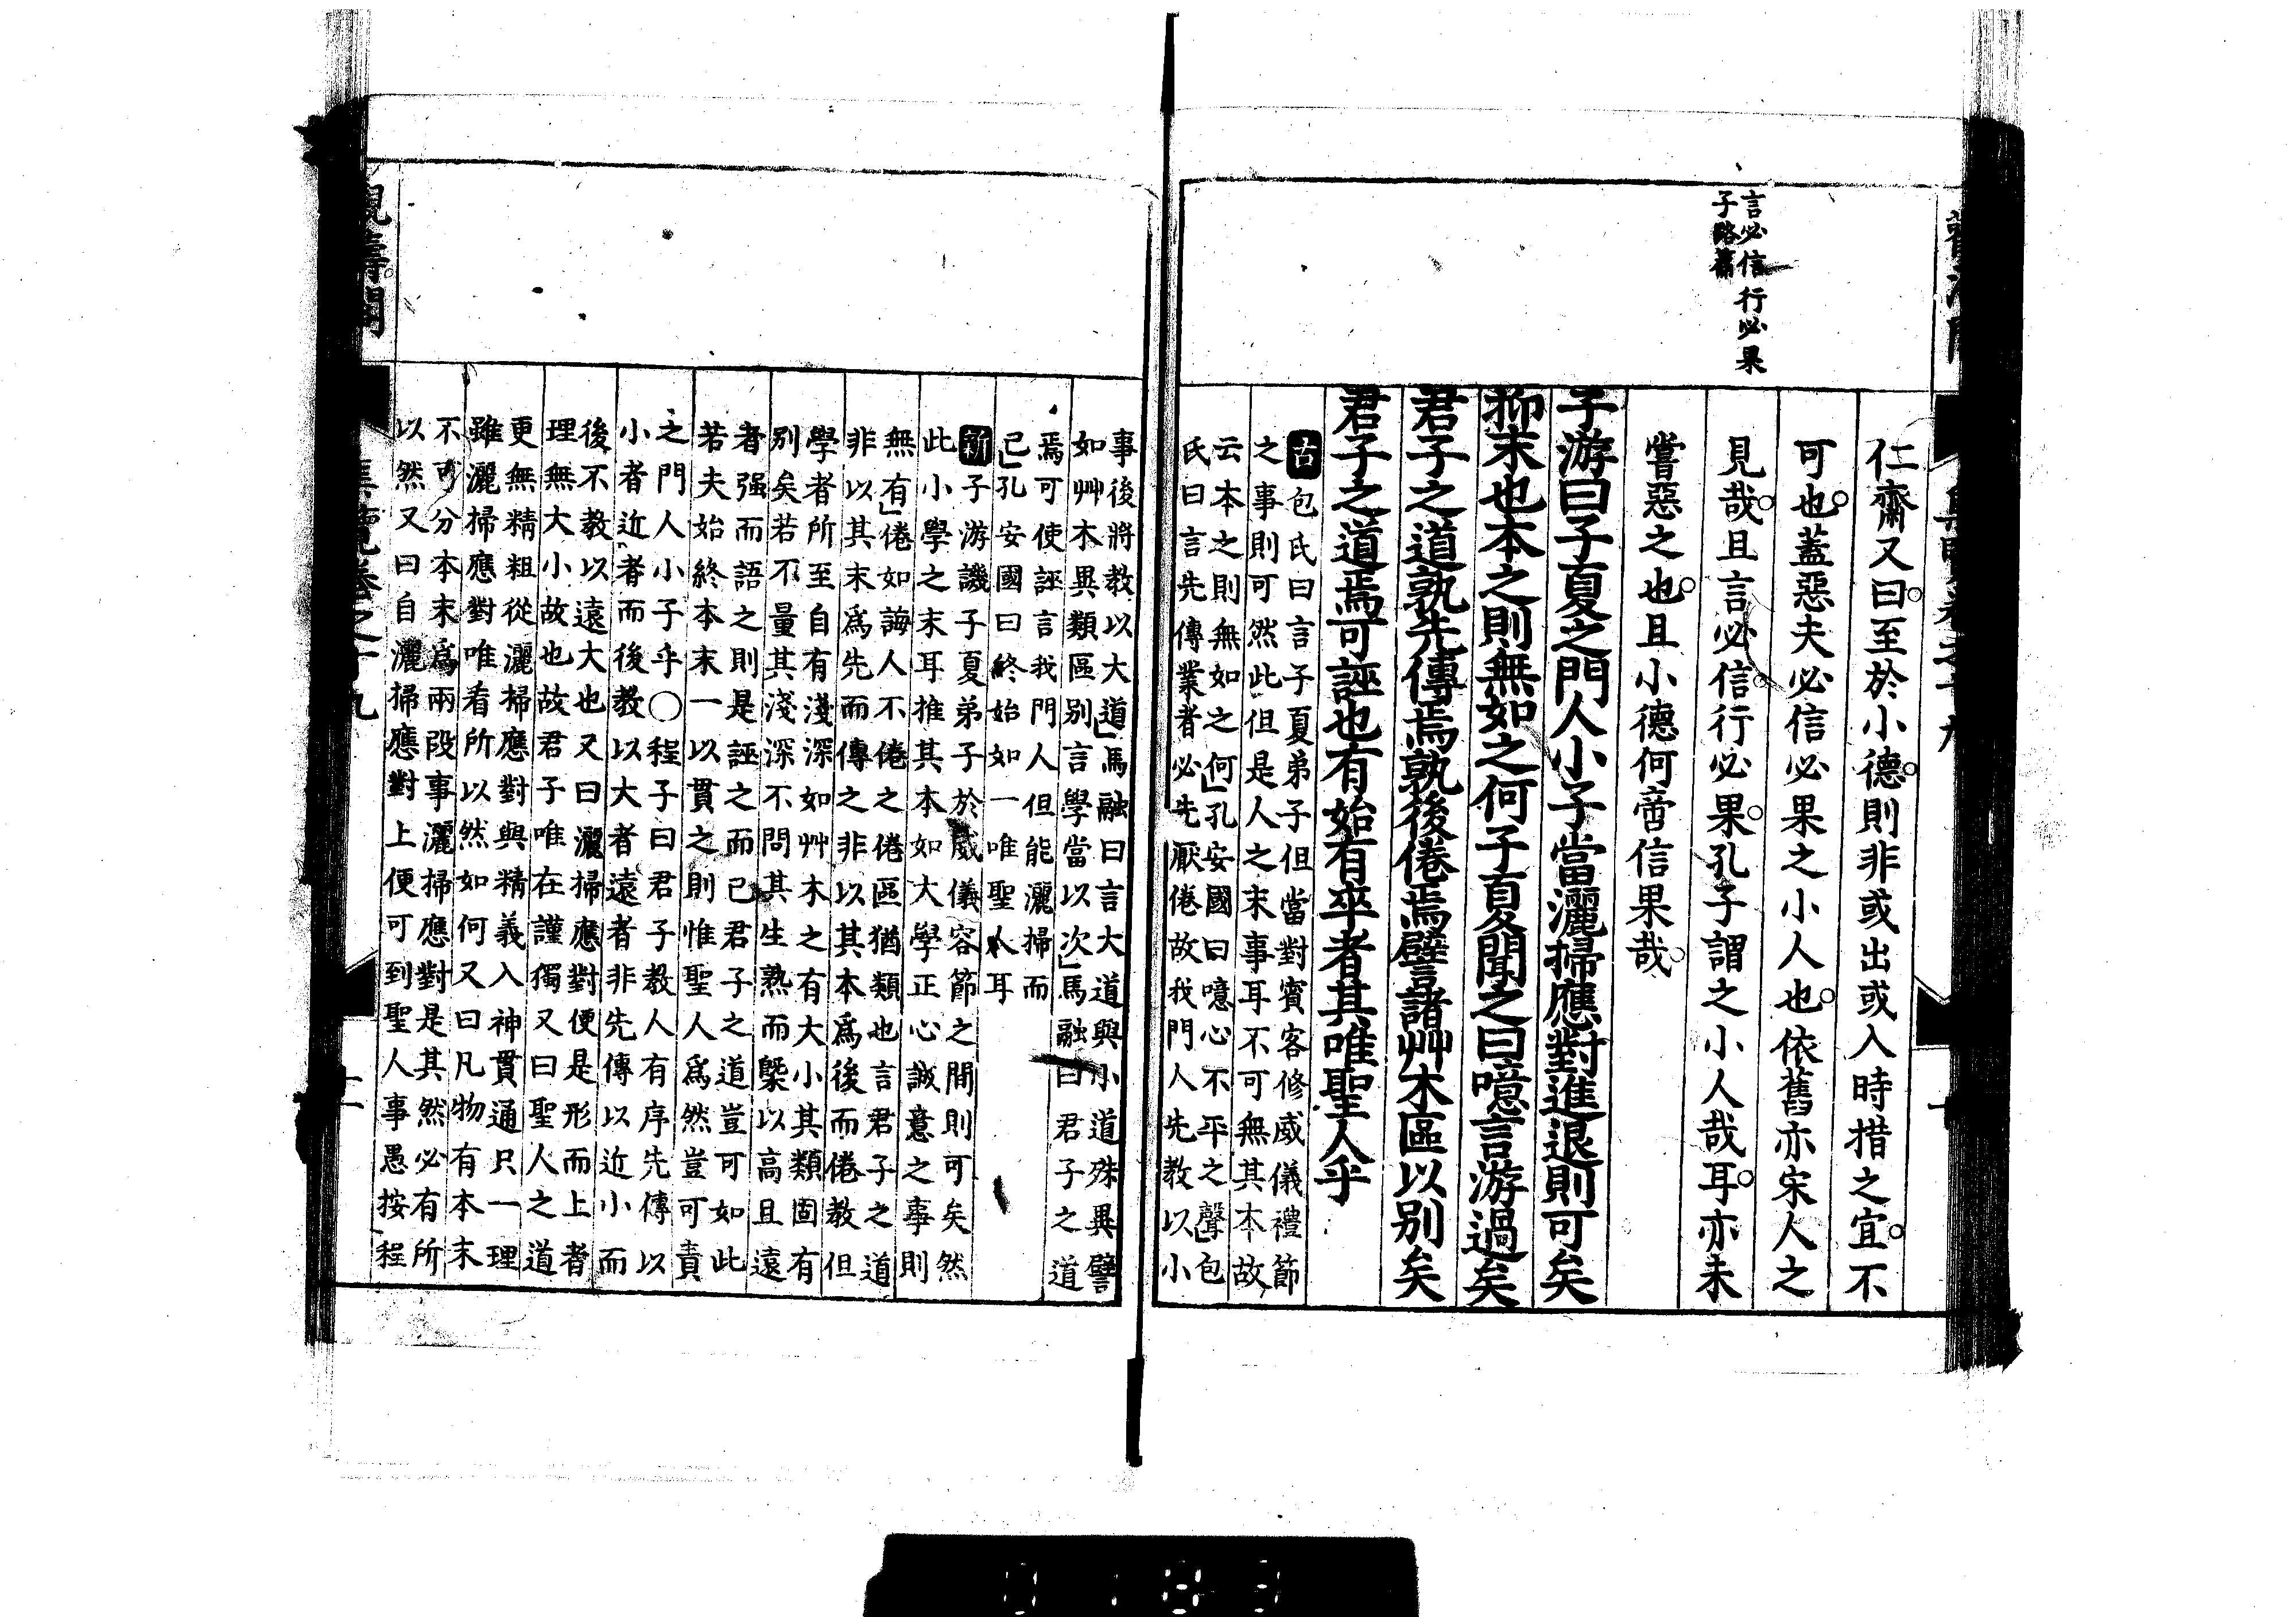 言必信行必果
子路篇
仁齋又曰至於小德則非或出或入時措之宜不
可也蓋惡夫必信必果之小人也依舊亦宋人之
見哉且言必信行必果孔子謂之小人哉耳亦未
嘗惡之也且小德何啻信果哉
子游曰子夏之門人小子當灑掃應對進退則可矣
抑末也本之則無如之何子夏聞之曰噫言游過矣
君子之道孰先傳焉孰後倦焉譬諸艸木區以別矣
君子之道焉可誣也有始有卒者其唯聖人乎
古包氏曰言子夏弟子但當對賓客修威儀禮節
之事則可然此但是人之末事耳不可無其本故
云本之則無如之何」孔安國曰噫心不平之聲」包
氏曰言先傳業者必先厭倦故我門人先教以小
事後將教以大道」馬融曰言大道與小道殊異譬
如艸木異類區別言學當以次」馬融曰君子之道
焉可使誣言我門人但能灑掃而
已」孔安國曰終始如一唯聖人耳
新子游譏子夏弟子於威儀容節之間則可矣然
此小學之末耳推其本如大學正心誠意之事則
無有」倦如誨人不倦之倦區猶類也言君子之道
非以其末爲先而傳之非以其本爲後而倦教但
學者所至自有淺深如艸木之有大小其類固有
別矣若不量其淺深不問其生熟而槩以高且遠
者强而語之則是誣之而已君子之道豈可如此
若夫始終本末一以貫之則惟聖人爲然豈可責
之門人小子乎○程子曰君子教人有序先傳以
小者近者而後教以大者遠者非先傳以近小而
後不教以遠大也又曰灑掃應對便是形而上者
理無大小故也故君子唯在謹獨又曰聖人之道
更無精粗從灑掃應對與精義入神貫通只一理
雖灑掃應對唯看所以然如何又曰凡物有本末
不可分本末爲兩段事灑掃應對是其然必有所
以然又曰自灑掃應對上便可到聖人事愚按程